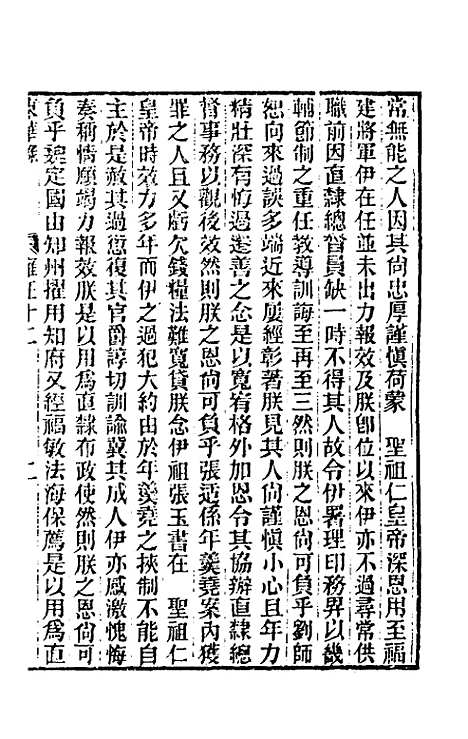 常無能之人因其尙忠厚謹愼荷蒙　聖祖仁皇帝深恩用至福
建將軍伊在任並未出力報效及朕卽位以來伊亦不過尋常供
職前因直隸總督員缺一時不得其人故令伊署理印務畀以畿
輔節制之重任敎導訓誨至再至三然則朕之恩尙可負乎劉師
恕向來過誤多端近來屢經彰著朕見其人尙謹愼小心且年力
精壯深有悔過遷善之念是以寬宥格外加恩令其協辦直隸總
督事務以觀後效然則朕之恩尙可負乎張适係年羹堯案內獲
罪之人且又虧欠錢糧法難寬貸朕念伊祖張玉書在　聖祖仁
皇帝時效力多年而伊之過犯大約由於年羹堯之挾制不能自
主於是赦其過愆復其官爵諄切訓諭冀其成人伊亦感激愧悔
奏稱情願竭力報效朕是以用爲直隸布政使然則朕之恩尙可
負乎魏定國由知州擢用知府又經福敏法海保薦是以用爲直
東華錄　雍正十二　二